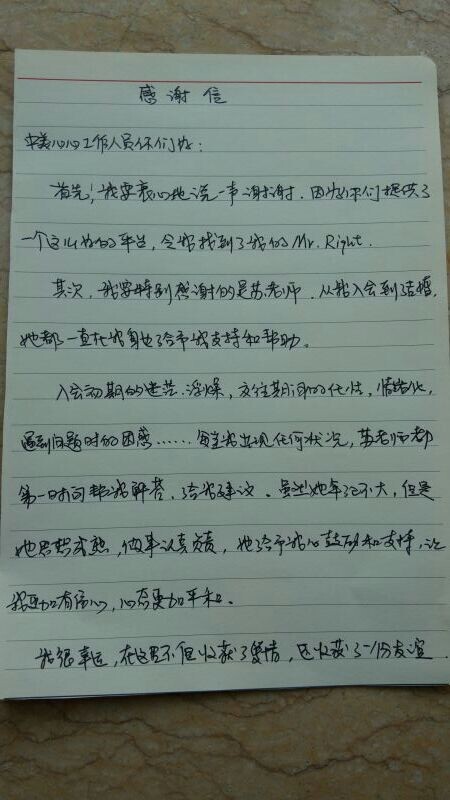 感谢信
中美心心工作人员你们好：
首先，我要衷心地说一声谢谢。因为你们提供了
一个这么好的平台，令我找到了我的Mr. Right.
其次，我要特别感谢的是苏老师，从我入会到结婚，
她都一直在我身边给予我支持和帮助。
入会初期的迷茫、浮燥，交往期间的任性，情绪化，
遇到问题时的困惑……每当我出现任何状况，苏老师都
第一时间帮我解答、给我建议。虽然她年纪不大，但是
她思想成熟，做事认真负责，她给予我心鼓励和支持，让
我更加有信心，心态更加平和。
我很幸运，在这里不但收获了爱情，还收获了一份友谊.